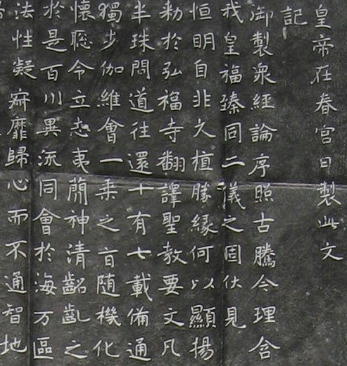 皇帝在春宮日製此文
記
御製眾經論序照古騰今理含
我皇福臻同二儀之固伏見
恒明自非久植勝緣何以顯揚
勑於弘福寺翻譯聖教要文凡
半珠問道往還十有七載備通
獨步伽維會一乘之旨隨機化
懷聰令立志夷簡神清齠齔之
於是百川異流同會於海萬區
法性凝寂靡歸心而不通智地